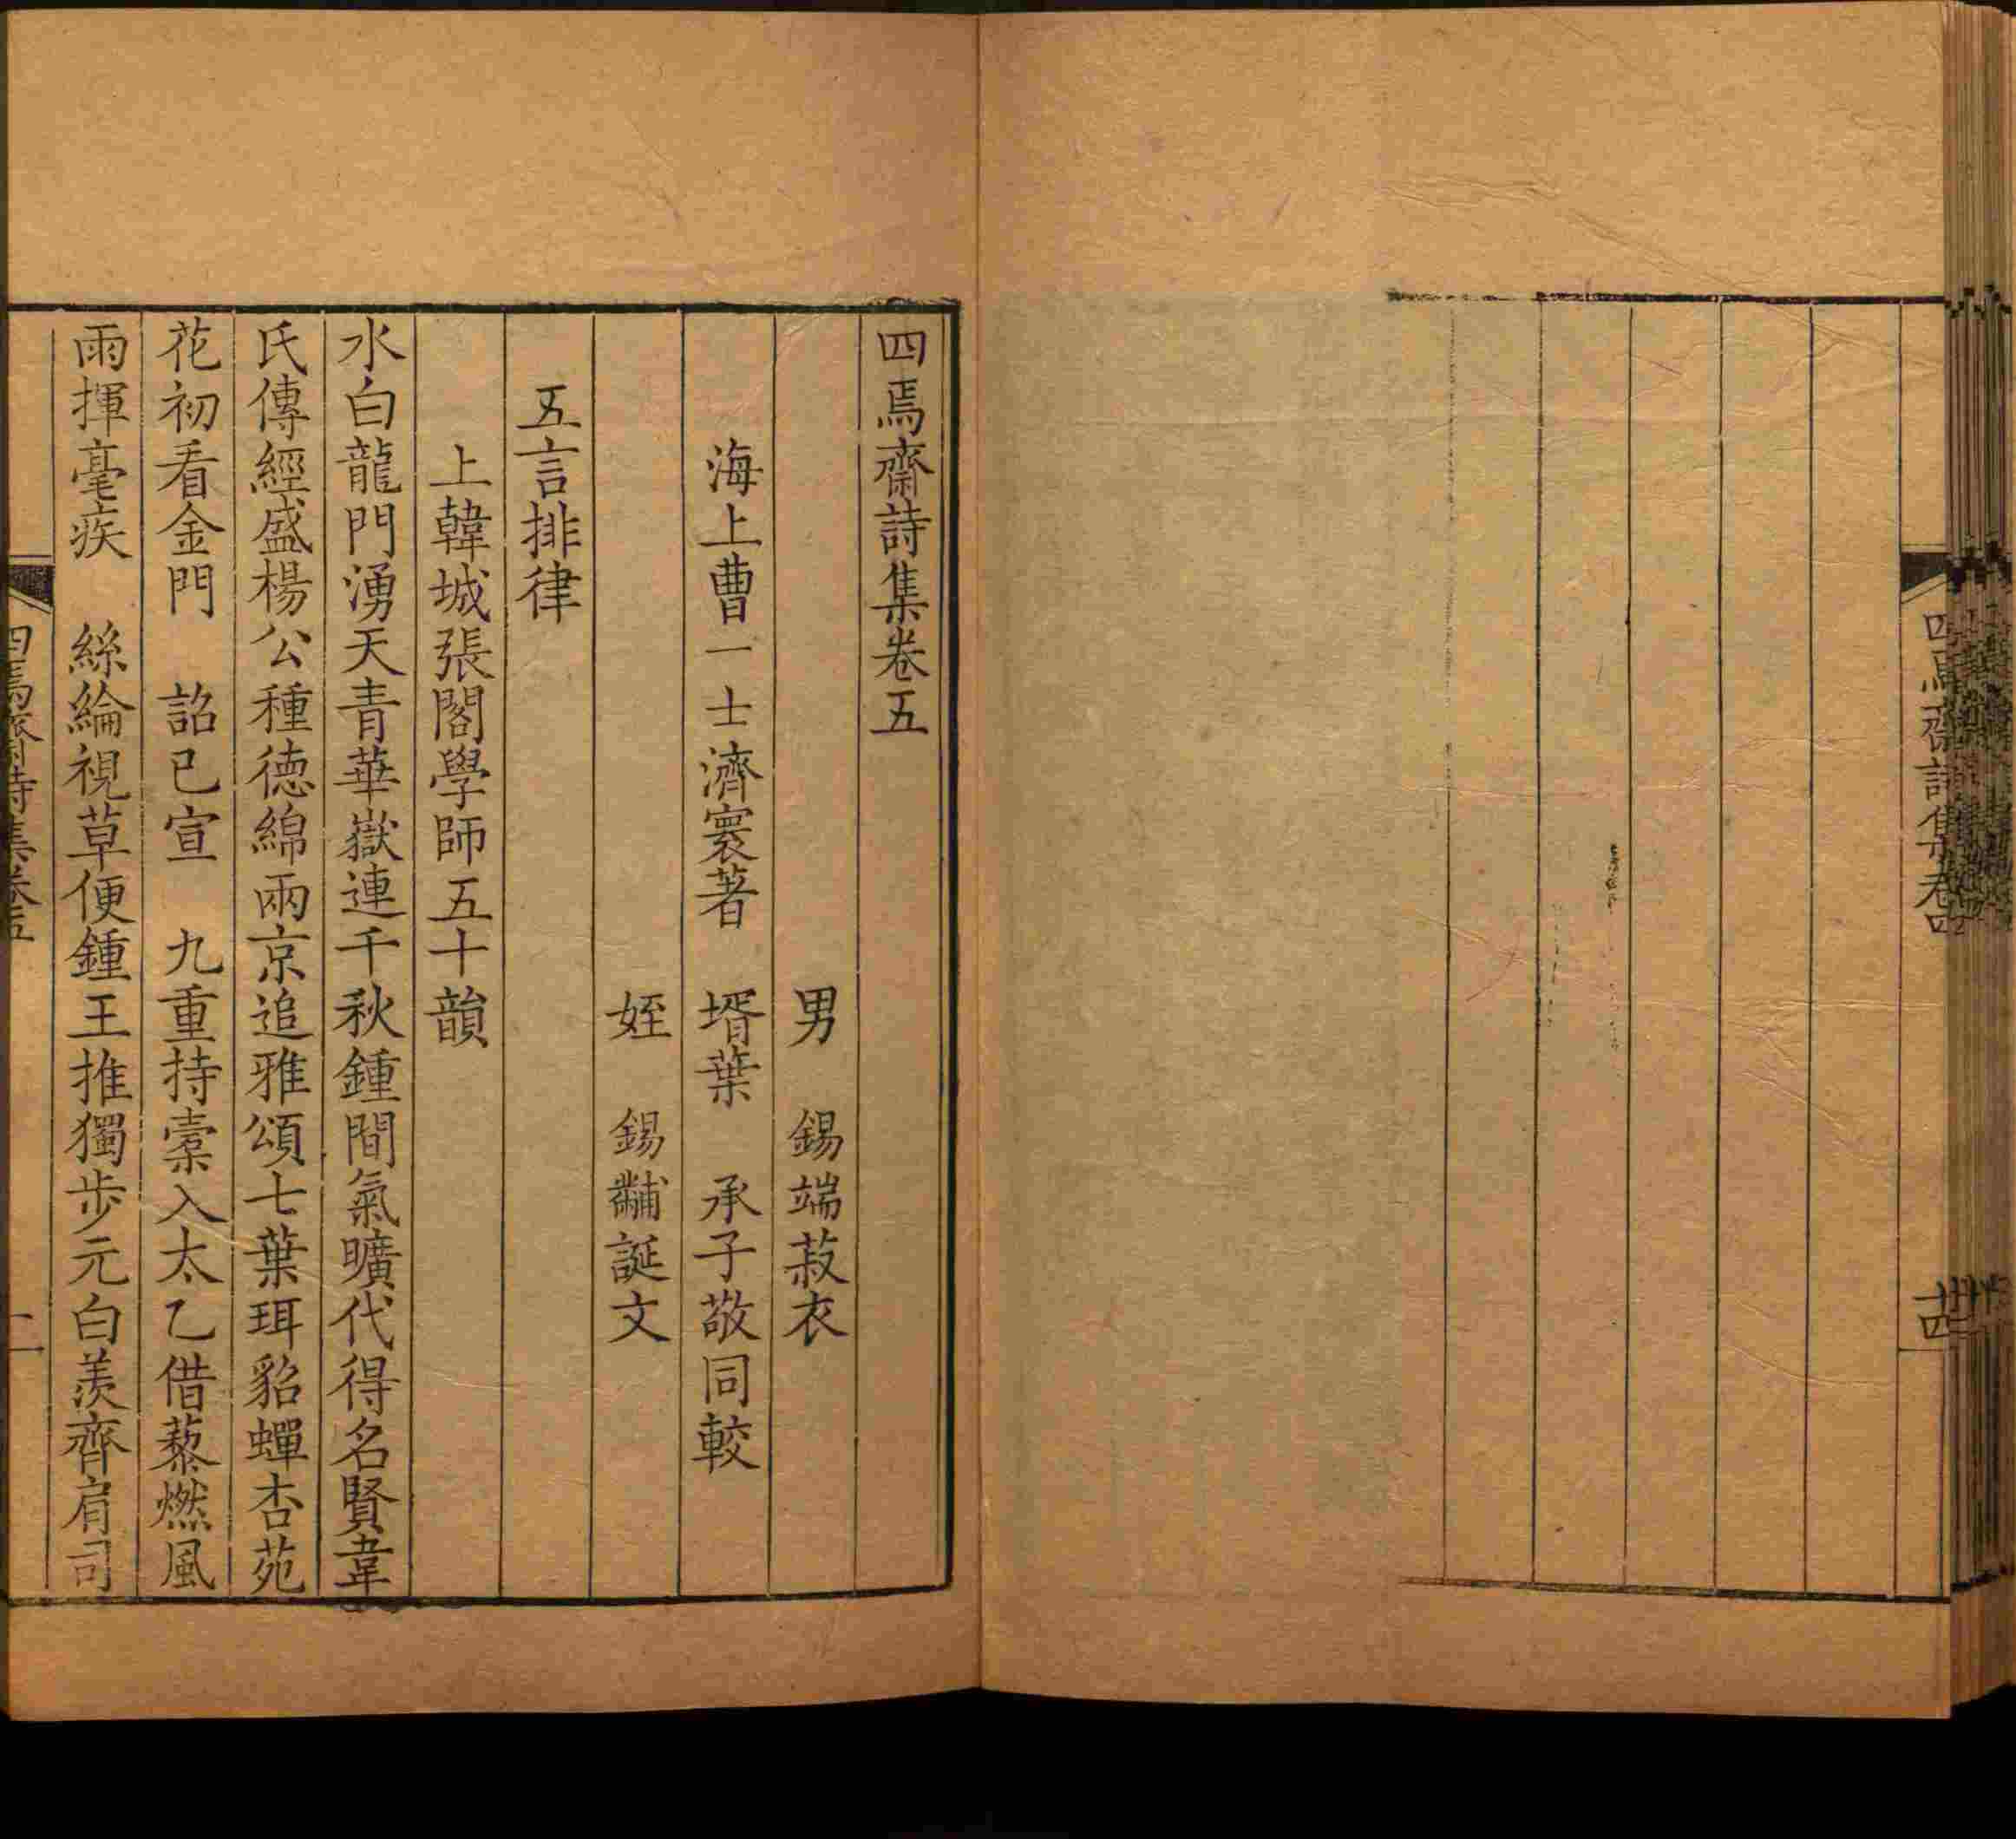 四焉齋詩集卷四
十四
四焉齋詩集卷五
男　錫端菽衣
海上曹一士濟寰著　壻葉　承子敬同較
姪　錫黼誕文
五言排律
上韓城張閣學師五十韻
水白龍門湧天青華嶽連千秋鍾間氣曠代得名賢韋
氏傳經盛楊公種德綿兩京追雅頌七葉珥貂蟬杏苑
花初看金門　詔已宣　九重持橐入太乙借藜燃風
雨揮毫疾　絲綸視草便鍾王推獨步元白羨齊肩司
四焉齋詩集卷五
一